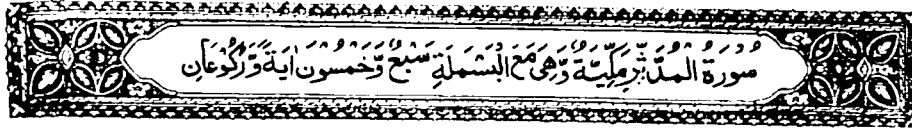 سُورَةُ الْمُدَّثِّرِ مَكِّيَّةٌ وَّهِيَ مَعَ الْبَسْمَلَةِ سَبْعٌ وَّخَمْسُونَ اٰيَةً وَّرُكُوْعَانِ